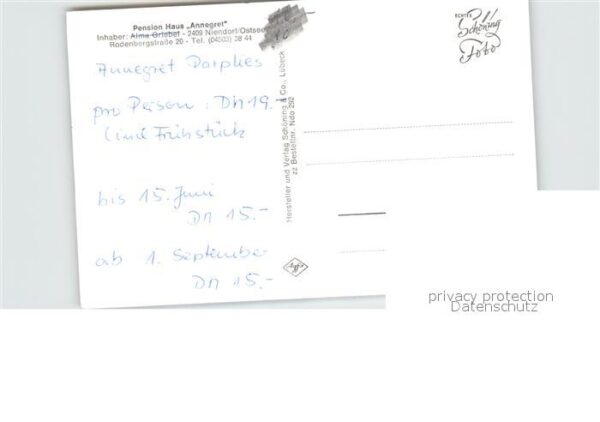 Pension Haus „Annegret"
Inhaber: Alma Griebel - 2409 Niendorf/Ostsee
Rodenbergstraße 20 - Tel. (04503) 38 44
Annegret
pro Person : DM 19.-
(incl Frühstück
bis 15. Juni
DM 15.-
ab 1. September
DM 15.-
Hersteller und Verlag Schöning & Co., Lübeck
zz Bestellnr. Ndo 292
ECHTES
Schöning
Foto
Agfa
privacy protection
Datenschutz